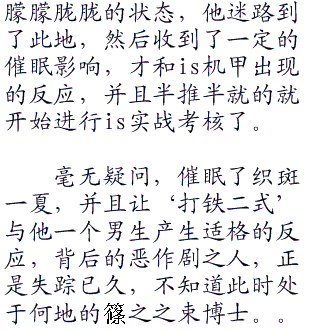 朦朦胧胧的状态，他迷路到
了此地，然后收到了一定的
催眠影响，才和is机甲出现
的反应，并且半推半就的就
开始进行is实战考核了。
毫无疑问，催眠了织斑
一夏，并且让‘打铁二式’
与他一个男生产生适格的反
应，背后的恶作剧之人，正
是失踪已久，不知道此时处
于何地的篠之之束博士。。